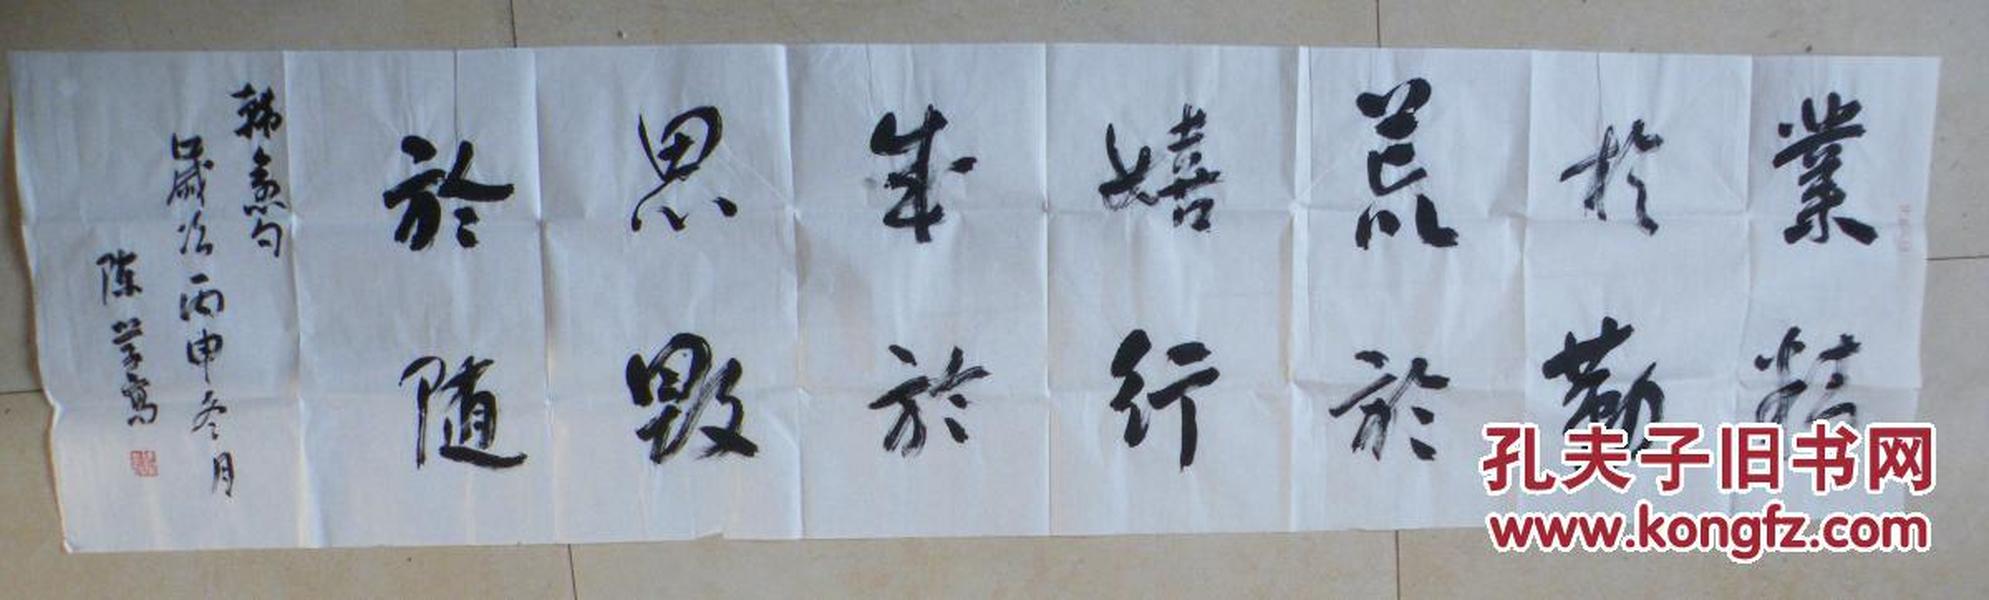 業精
於勤
荒於
嬉行
成於
思毀
於隨
韩愈句
歲次丙申冬月
陈学寫
孔夫子旧书网
www.kongfz.com